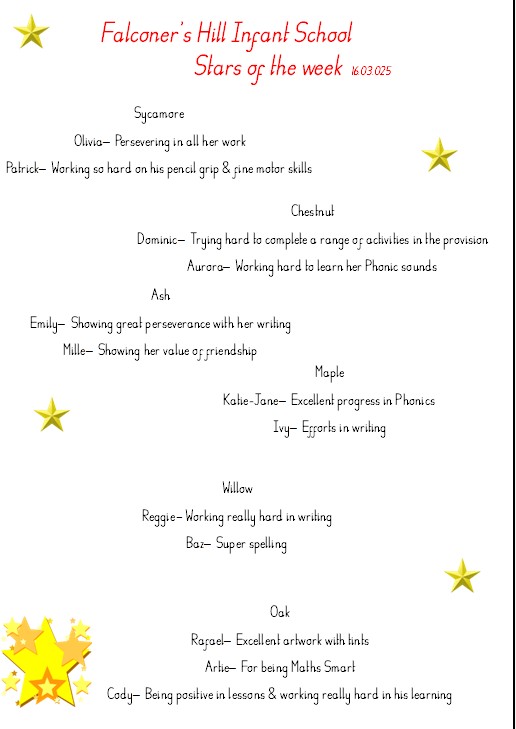 Falconer's Hill Infant School
Stars of the week 16.03.025
Sycamore
Olivia– Persevering in all her work
Patrick– Working so hard on his pencil grip & fine motor skills
Chestnut
Dominic– Trying hard to complete a range of activities in the provision
Aurora– Working hard to learn her Phonic sounds
Ash
Emily– Showing great perseverance with her writing
Mille– Showing her value of friendship
Maple
Katie-Jane– Excellent progress in Phonics
Ivy– Efforts in writing
Willow
Reggie- Working really hard in writing
Baz– Super spelling
Oak
Rafael– Excellent artwork with tints
Artie– For being Maths Smart
Cody– Being positive in lessons & working really hard in his learning